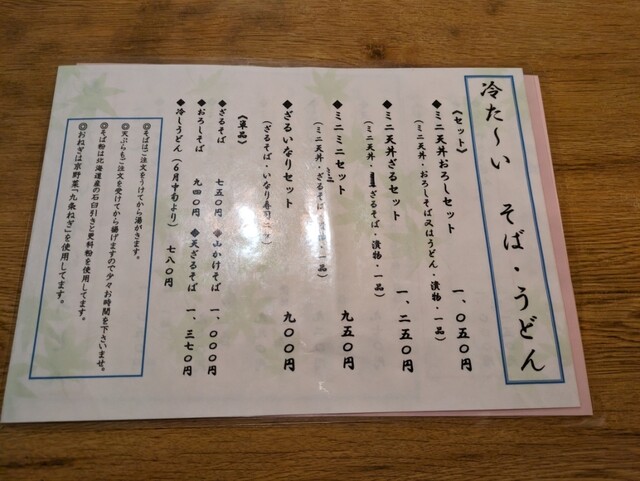 冷た〜い そば・うどん
《セット》
◆ミニ天丼おろしセット 一、〇五〇円
(ミニ天丼・おろしそば又はうどん・漬物・一品)
◆ミニ天丼ざるセット 一、二五〇円
(ミニ天丼・ざるそば・漬物・一品)
◆ミニミニセット 九五〇円
(ミニ天丼・ミニざるそば・漬物・一品)
◆ざるいなりセット 九〇〇円
(ざるそば・いなり寿司二ケ)
《単品》
◆ざるそば 七五〇円 ◆山かけそば 一、〇〇〇円
◆おろしそば 九四〇円 ◆天ざるそば 一、三七〇円
◆冷しうどん(6月中旬より) 七八〇円
◎そばはご注文をうけてから湯がきます。
◎天ぷらもご注文を受けてから揚げますので少々お時間を下さいませ。
◎そば粉は北海道産の石臼引きと更科粉を使用してます。
◎おねぎは京野菜「九条ねぎ」を使用してます。